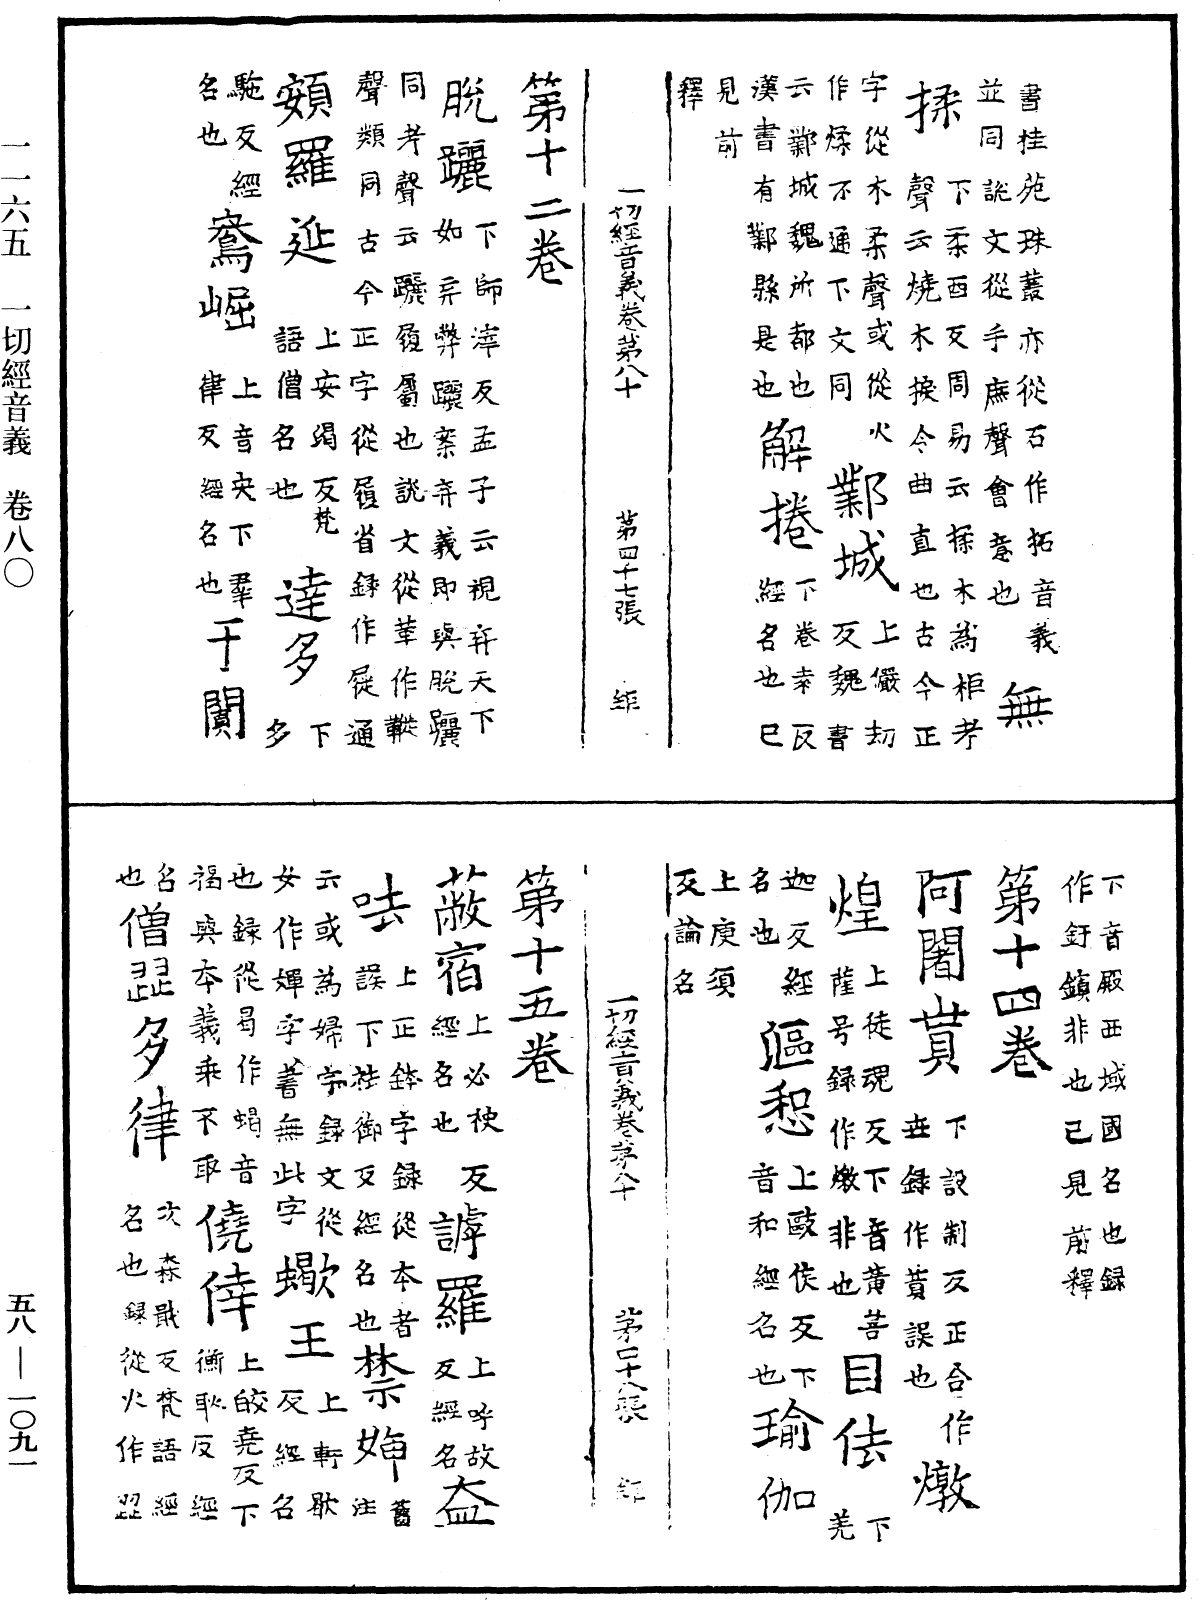 書桂苑珠叢亦從石作拓音義
並同說文從手庶聲會意也
無
揉
下柔酉反周易云揉木為柜考
聲云燒木揉令曲直也古今正
字從木柔聲或從火
作煣不通下文同
鄴城
上儼刧
反魏書
云鄴城魏所都也
漢書有鄴縣是也
解捲
下卷袁反
經名也已
見前
釋
一切經音義卷第八十 第四十七張
第十二卷
脫躧
下師滓反孟子云視弃天下
如弃弊躧案弃義即與脫躧
同考聲云躧履屬也說文從革作鞾
聲類同古今正字從履省錄作屣通
頞羅延
上安遏反梵
語僧名也
達多
下
多
馳反經
名也
鴦崛
上音央下羣
律反經名也
于闐
下音殿西域國名也錄
作釪鎮非也已見前釋
第十四卷
阿闍貰
下設制反正合作
世錄作貰誤也
燉
煌
上徒魂反下音黃菩
薩号錄作燉非也
目佉
下
羌
迦反經
名也
漚惒
上歐侯反下
音和經名也
瑜伽
上庾須
反論名
一切經音義卷第八十 第四十八張
第十五卷
蔽宿
上必袂反
經名也
謼羅
上呼故
反經名
益
呿
上正鉢字錄從本者
誤下祛御反經名也
禁婢
舊注
云或為婦字錄文從
女作婢字著無此字
蠍王
上軒歇
反經名
也錄從曷作蝎音
褐與本義乘不取
僥倖
上皎堯反下
衡耿反經
名
也
僧澀多律
次森戢反梵語經
名也錄從火作澀
一一六五 一切經音義 卷八〇
五八—一〇九一